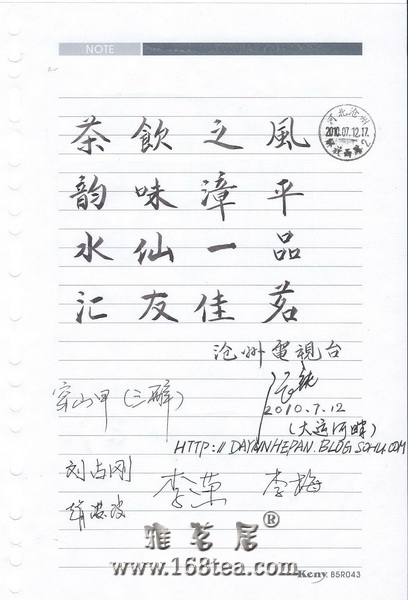 NOTE
茶飲之風
韵味漳平
水仙一品
汇友佳茗
河北沧州
2010.07.12.17
沧州電視台
穿山甲(三醉)
2010.7.12
(大运河畔)
HTTP://DAYUNHEPAN.BLOG.SOHU.COM
刘占刚
李荣
李梅
雅茗居®
www.168tea.com
Keny B5R043